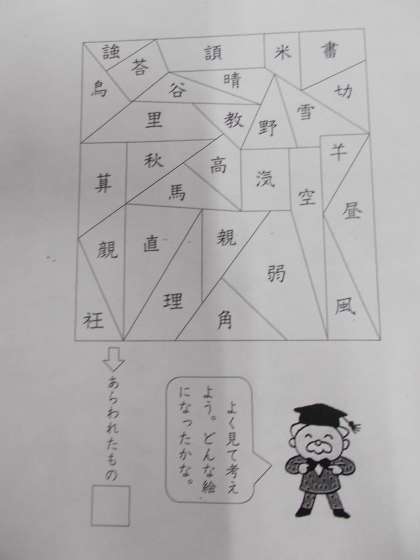 強
荅
米
書
鳥
谷
晴
切
里
教
野
雪
羊
秋
高
空
馬
昼
直
親
弱
理
角
風
よく見て考え
よう。どんな絵
になったかな。
あらわれたもの